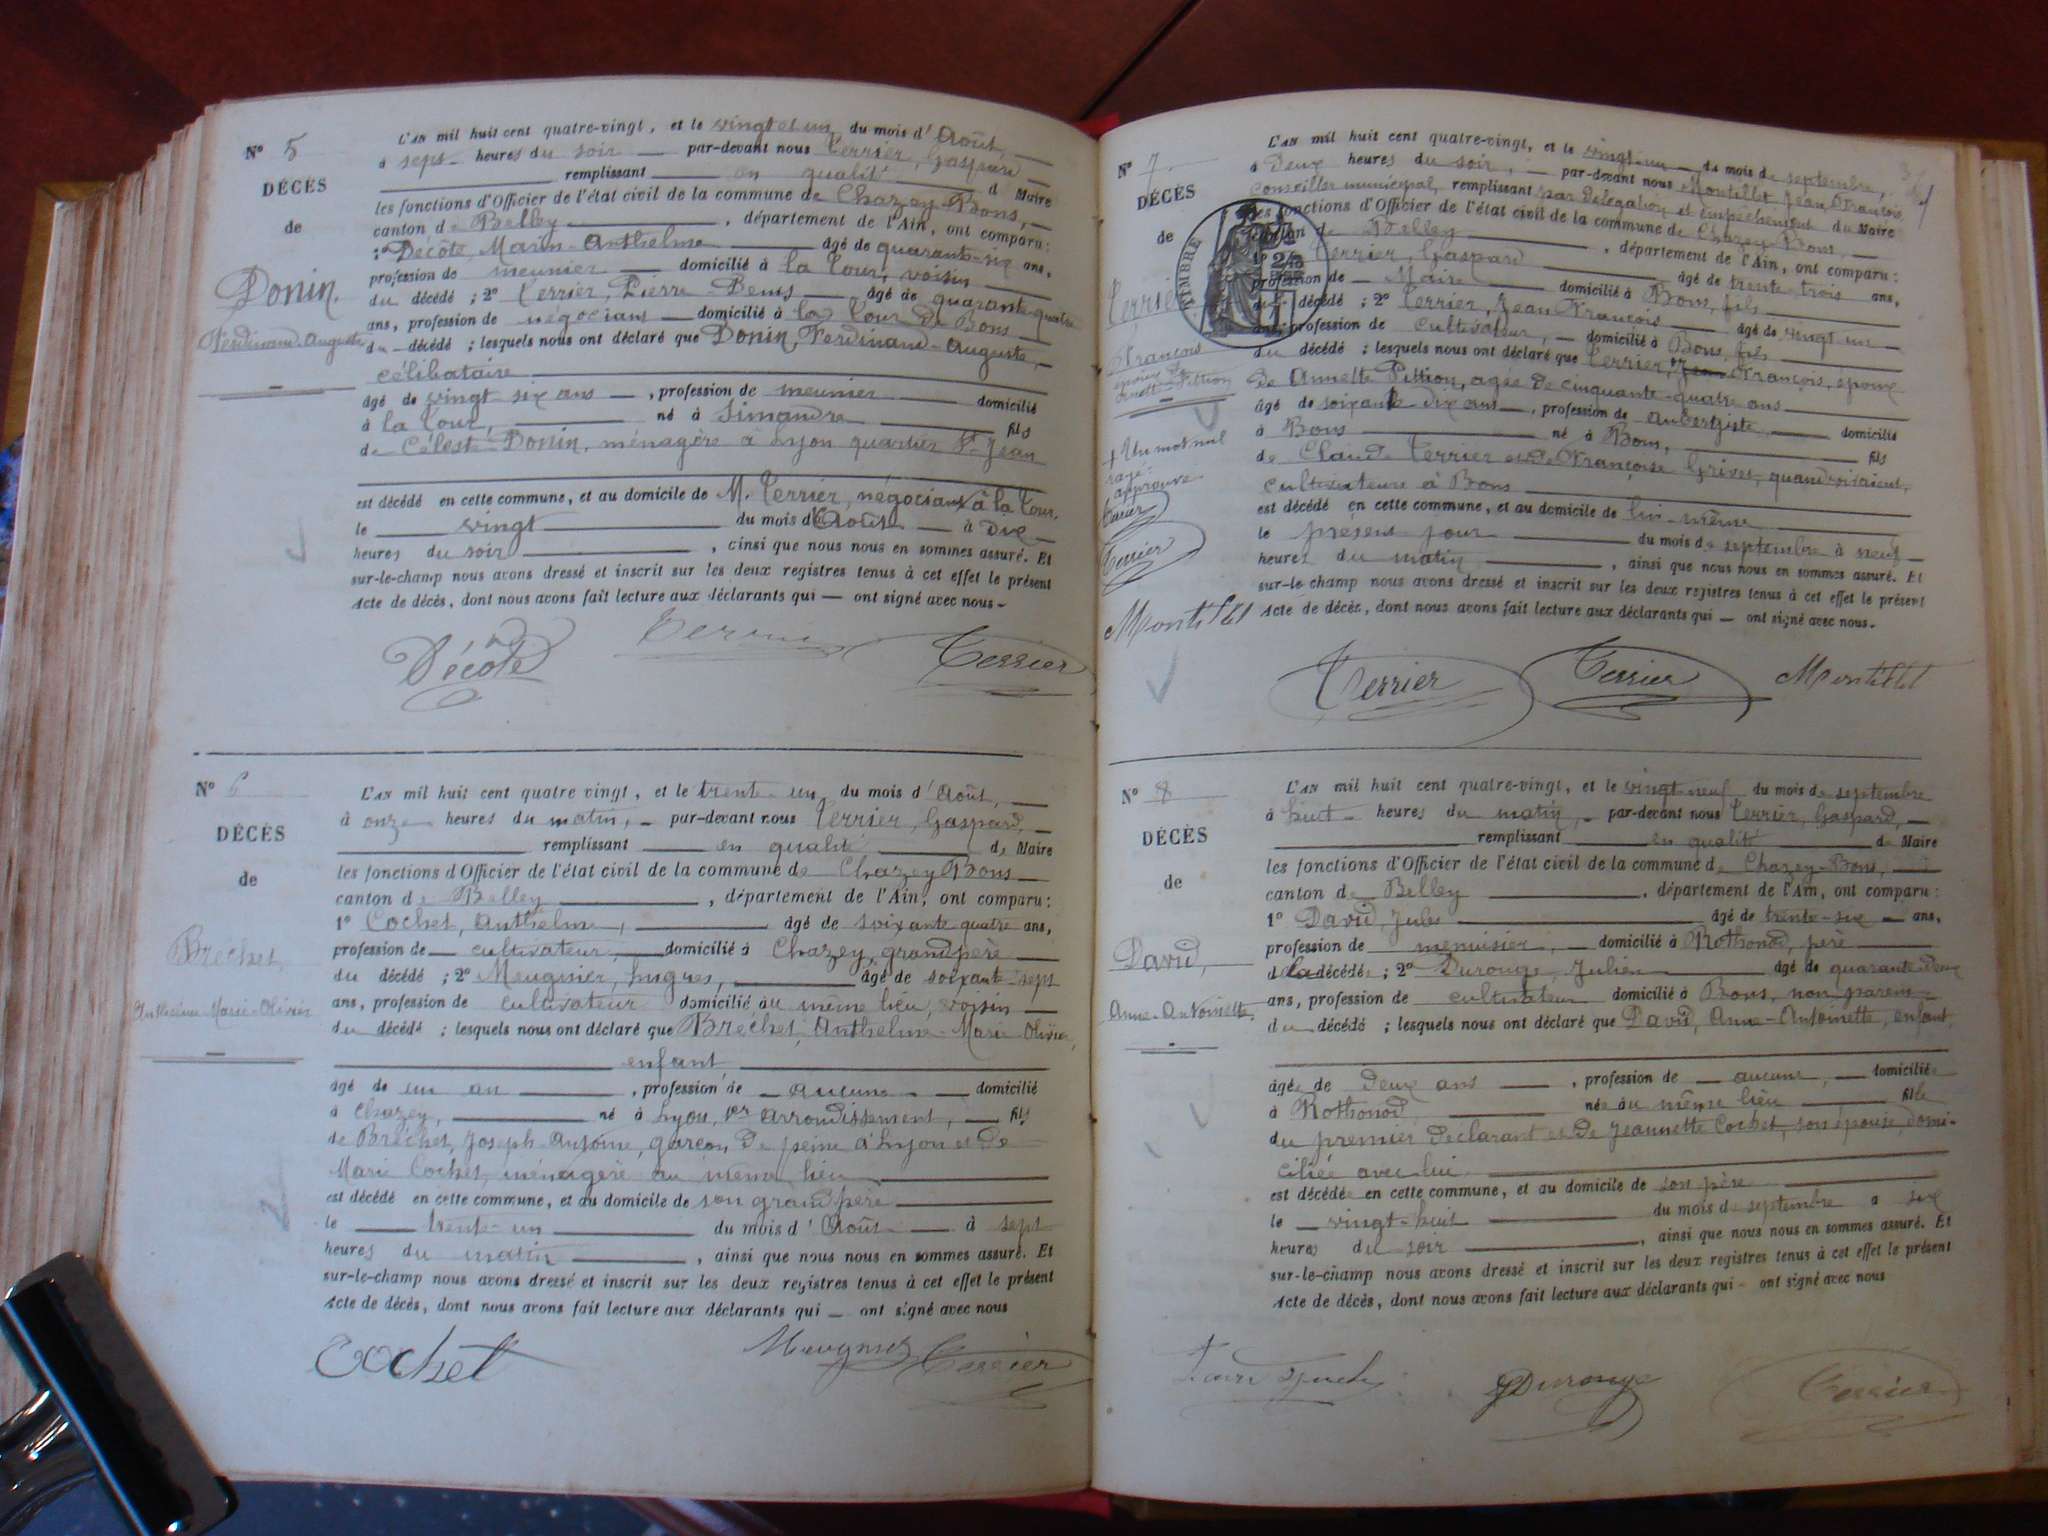 N° 5
DÉCÈS
de
Donin,
Ferdinand-Auguste
L'AN mil huit cent quatre-vingt, et le vingt et un du mois d'Août,
à sept heures du soir par-devant nous Terrier, Gaspard
remplissant en qualité d Maire
les fonctions d'Officier de l'état civil de la commune de Chazey-Bons,
canton de Belley, département de l'Ain, ont comparu:
1° Décôte, Marin-Anthelme âgé de quarante-six ans,
profession de meunier domicilié à la Tour, voisin
du décédé ; 2° Terrier, Pierre Denis âgé de quarante-quatre
ans, profession de négociant domicilié à la Tour de Bons
du décédé ; lesquels nous ont déclaré que Donin, Ferdinand-Auguste,
célibataire
âgé de vingt six ans, profession de meunier domicilié
à la Tour, né à Simandre fils
de Céleste Donin, ménagère à Lyon quartier St Jean
est décédé en cette commune, et au domicile de M. Terrier, négociant à la Tour,
le vingt du mois d'Août à dix
heures du soir, ainsi que nous nous en sommes assuré. Et
sur-le-champ nous avons dressé et inscrit sur les deux registres tenus à cet effet le présent
Acte de décès, dont nous avons fait lecture aux déclarants qui — ont signé avec nous -
Décote Terrier Terrier
N° 6
DÉCÈS
de
Brechet,
Anthelme-Marie-Olivier
L'AN mil huit cent quatre vingt, et le trente-un du mois d'Août,
à onze heures du matin, par-devant nous Terrier, Gaspard,
remplissant en qualité de Maire
les fonctions d'Officier de l'état civil de la commune de Chazey Bons
canton de Belley, département de l'Ain, ont comparu:
1° Cochet, Anthelme, âgé de soixante quatre ans,
profession de cultivateur, domicilié à Chazey, grand père
du décédé ; 2° Meugnier, hugues, âgé de soixante-sept
ans, profession de cultivateur domicilié au même lieu, voisin
du décédé ; lesquels nous ont déclaré que Bréchet, Anthelme-Marie Olivier,
enfant
âgé de un an, profession de aucune domicilié
à Chazey, né à Lyon, 1er arrondissement, fils
de Bréchet, Joseph Antoine, garçon de peine à Lyon et de
Marie Cochet, ménagère au même lieu
est décédé en cette commune, et au domicile de son grand père
le trente-un du mois d'Août à sept
heures du matin, ainsi que nous nous en sommes assuré. Et
sur-le-champ nous avons dressé et inscrit sur les deux registres tenus à cet effet le présent
Acte de décès, dont nous avons fait lecture aux déclarants qui — ont signé avec nous
Cochet Meugnier Terrier
N° 7
DÉCÈS
de
Terrier
François
époux de
Annette Pittion
+ Un mot nul
rayé:
approuvé
Terrier
Terrier
Montillet
TIMBRE
L'AN mil huit cent quatre-vingt, et le vingt-un du mois de septembre,
à deux heures du soir, par-devant nous Montillet Jean François,
Conseiller municipal, remplissant par délégation et empêchement du Maire
les fonctions d'Officier de l'état civil de la commune de Chazey-Bons,
canton de Belley, département de l'Ain, ont comparu:
1° Terrier, Gaspard âgé de trente trois ans,
profession de Maire domicilié à Bons, fils
du décédé ; 2° Terrier, Jean François âgé de vingt un
ans, profession de cultivateur, domicilié à Bons, fils
du décédé ; lesquels nous ont déclaré que Terrier, Jean François, époux
de Annette Pittion, agée de cinquante-quatre ans
âgé de soixante dix ans, profession de aubergiste domicilié
à Bons né à Bons, fils
de Claude Terrier et de Françoise Grivet, quand vivaient,
cultivateurs à Bons
est décédé en cette commune, et au domicile de lui-même
le présent jour du mois de septembre à neuf
heures du matin, ainsi que nous nous en sommes assuré. Et
sur-le champ nous avons dressé et inscrit sur les deux registres tenus à cet effet le présent
Acte de décès, dont nous avons fait lecture aux déclarants qui — ont signé avec nous.
Terrier Terrier Montillet
N° 8
DÉCÈS
de
David,
Anne-Antoinette,
L'AN mil huit cent quatre-vingt, et le vingt-neuf du mois de septembre
à huit heures du matin, par-devant nous Terrier, Gaspard,
remplissant en qualité de Maire
les fonctions d'Officier de l'état civil de la commune de Chazey-Bons,
canton de Belley, département de l'Ain, ont comparu:
1° David, Jules âgé de trente-six ans,
profession de menuisier, domicilié à Rothonod, père
de la décédée ; 2° Durouge, Julien âgé de quarante deux
ans, profession de cultivateur domicilié à Bons, non parent
du décédé ; lesquels nous ont déclaré que David, Anne-Antoinette, enfant,
âgée de deux ans, profession de aucune, domiciliée
à Rothonod, née au même lieu fille
du premier déclarant et de Jeannette Cochet, son épouse, domi-
ciliée avec lui
est décédée en cette commune, et au domicile de son père
le vingt-huit du mois de septembre a six
heures du soir, ainsi que nous nous en sommes assuré. Et
sur-le-champ nous avons dressé et inscrit sur les deux registres tenus à cet effet le présent
Acte de décès, dont nous avons fait lecture aux déclarants qui - ont signé avec nous
Durouge Terrier